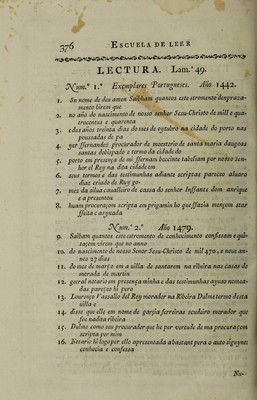 376 ESCUELA DE LEER
LECTURA. Lam.ª 49.
Num.º 1.º Exemplares Portugueses. Año 1442.
1. En nome de deus amen Saibham quantos este stromento despraza-
mento virem que
2. no año do nascimento de nosso senhor Jesu-Christo de mill e qua-
trocentos e quarenta
3. e dos años treinta dias de mes de outubro na cidade do porto nas
pousadas de pa
4. ger fferrandez procurador de moesteiro de santa maria dauguas
santas dobispado e termo da cidade do
5. porto em presenza de mi fferrnan boccinte taballiam por nosso sen-
hor el Rey na dita cidade em
6. seus termos e das testimunhas adiante scriptas paresceo aluara
diaz criado de Ruy go-
7. mez da silua cauallieiro de cassa do senhor Inffante dom anrique
e apresentou
8. huan procuraçom scripta em prigamin ho que ffazia mençom star
ffeita e asynada
Num.º 2.º Año 1479.
9. Saibam quantos este estromento de conhecimento confissam e qui-
tazem virem que no anno
10. do nascimento de nosso Senor Jesu-Christo de mil 470, e noue an-
nos 27 dias
11. do mes de março em a uilla de santarem na ribeira nas casas do
morada de martin
12. geeral notario em presença minha e das testimunhas ajuso nomea-
das paresçeo hi pero
13. Lourenço Vassallo del Rey morador na Ribeira Dulme termo desta
uilla e
14. disse que elle em nome de garzia ferreiras scudeiro morador que
foe nadita ribeira
15. Dulme como seu procurador que he per vertude de ma procuraçom
scripta per mim
16. Notario hi logo per ello apresentada abastant pera o auto siguynte
conhocia e confessa
No-